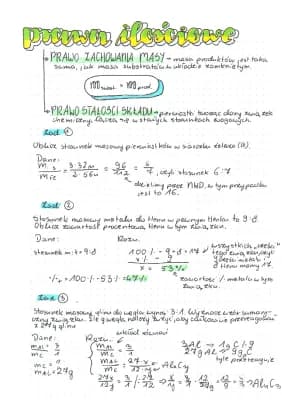 prawa ilościowe
• PRAWO ZACHOWANIA MASY → masa produktów jest taka
sama, jak masa substratów w układzie zamkniętym.
m subst. = m prod.
• PRAWO STAŁOŚCI SKŁADU → pierwiastki tworząc dany związek
chemiczny, łączą się w stałych stosunkach wagowych.
Zad 1
Oblicz stosunek masowy pierwiastków w siarczku żelaza (III).
Dane:
mS/mFe = 3·32u/2·56u = 96/112 = 6/7, czyli stosunek 6:7
dzielimy przez NWD, w tym przypadku
jest to 16.
Zad 2
Stosunek masowy metalu do tlenu w pewnym tlenku to 9:8.
Oblicz zawartość procentową tlenu w tym związku.
Dane: Rozw.
stosunek m:t = 9:8
100% - 9+8=17
x% - 9
x = 53%
wszystkich "części"
tego związku, czyli
metalu i
tlenu mamy 17.
% = 100% - 53% = 47%
zawartość metalu w tym
związku.
Zad 3
Stosunek masowy glinu do węgla wynosi 3:1. Wyznacz wzór sumary-
czny związku. Ile węgla należy zużyć, aby całkowicie przereagował
z 27g glinu
układ równań
Dane: Rozw.
mAl/mC = 3/1
mAl = 27g
mAl/mC = 3/1
mAl/mC = 27·x/12·y
AlxCy
3g Al - 1g C
27g Al - 9g C
tyle przereaguje
27x/12y = 3/1
x/y = 3/1 · 12/27 = 12/9 = 4/3 → Al4C3